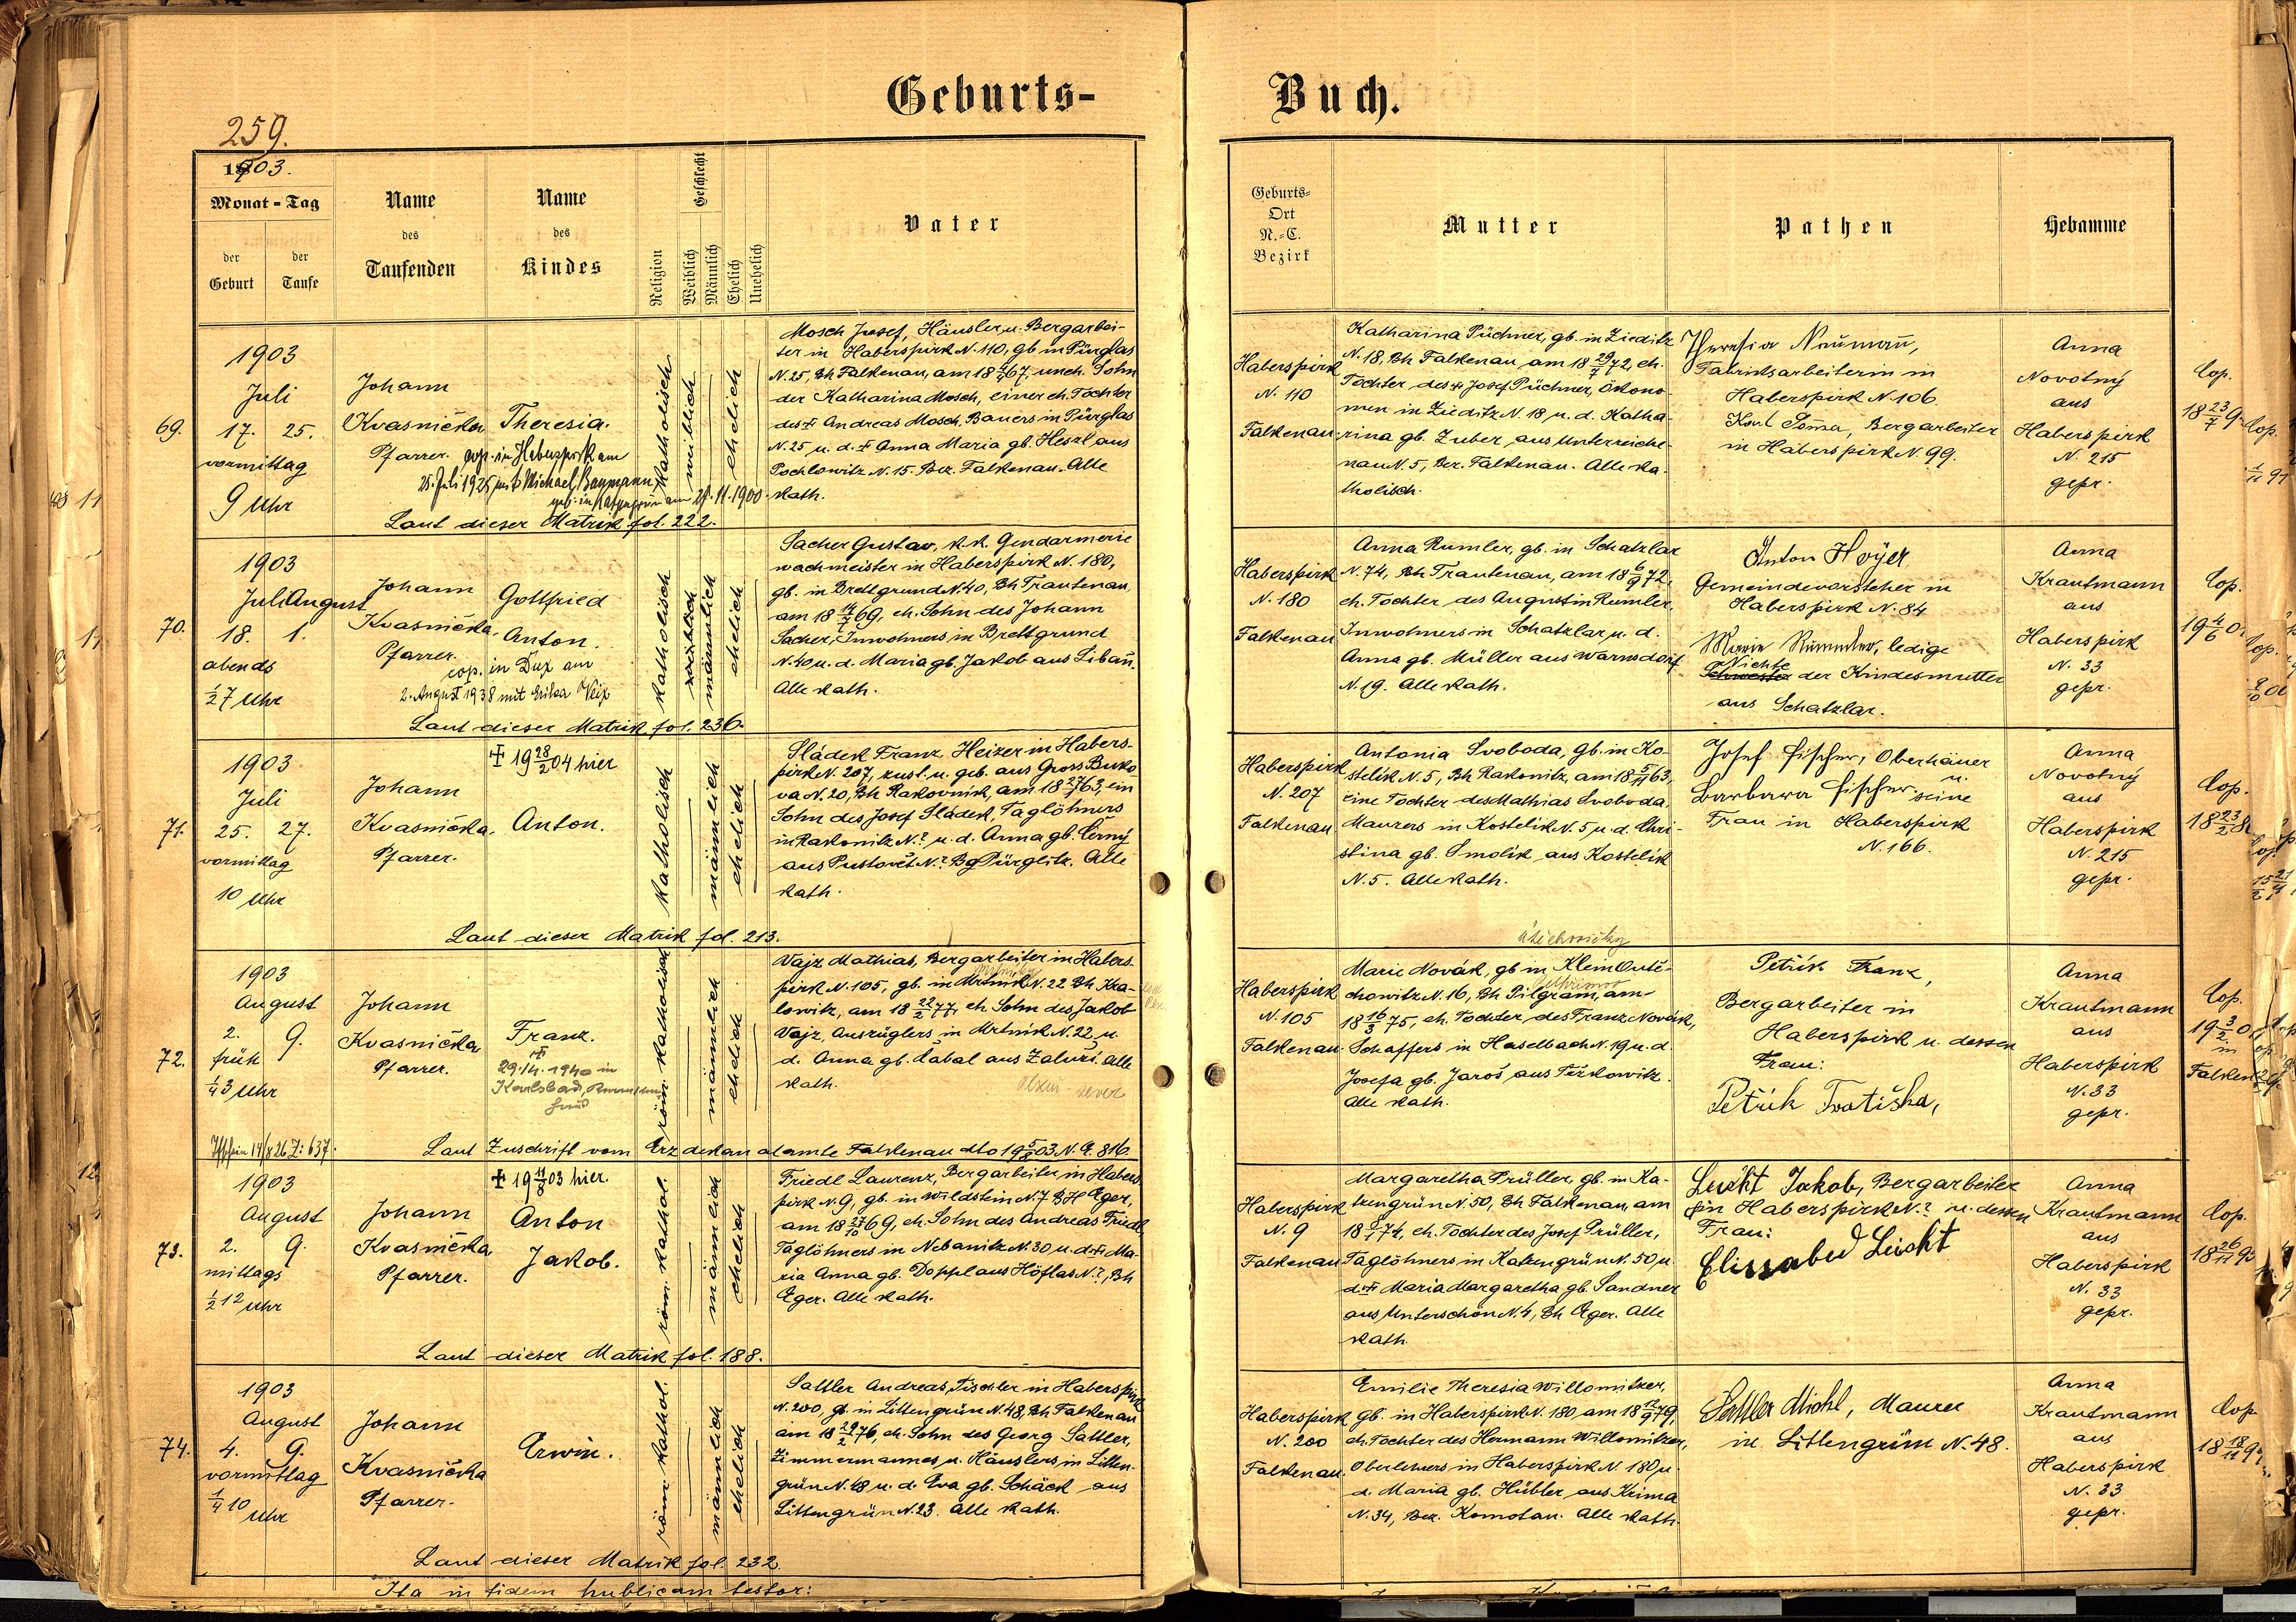 Geburts-
Buch.
259.
1903.
Monat - Tag
der Geburt
der Taufe
Name des Taufenden
Name des Kindes
Religion
Geschlecht
Weiblich
Männlich
Ehelich
Unehelich
Vater
Geburts-
Ort
N.-C.
Bezirk
Mutter
Pathen
Hebamme
69.
1903
Juli
17. 25.
vormittag
9 Uhr
Johann
Kvasnička
Pfarrer.
Theresia.
cop. in Haberspirk am
25. Juli 1925 mit Michael Baymann
geb. in am 21.11.1900.
Laut dieser Matrik fol. 222.
katholisch
weiblich
ehelich
Mosch Josef, Häusler u. Bergarbei-
ter in Haberspirk N. 110, gb. in Pürglas
N. 25, Bh Falkenau, am 18 4/4 67, uneh. Sohn
der Katharina Mosch, einer eh. Tochter
des + Andreas Mosch, Bauers in Pürglas
N. 25 u. d. + Anna Maria gb. Heszl aus
Pochlowitz N. 15. Bez. Falkenau. Alle
kath.
Haberspirk
N. 110
Falkenau
Katharina Püchner, gb. in Zieditz
N. 18, Bh Falkenau am 18 29/7 72, eh.
Tochter, des + Josef Püchner, Ökono-
men in Zieditz N. 18 u. d. Katha-
rina gb. Zuber, aus Unterreiche-
nau N. 5, Bez. Falkenau. Alle ka-
tholisch.
Theresia Naumañ,
Fabriksarbeiterin in
Haberspirk N. 106.
Karl Toma, Bergarbeiter
in Haberspirk N. 99.
Anna
Novotný
aus
Haberspirk
N. 215
gepr.
Cop.
18 23/7 9
70.
1903
Juli August
18. 1.
abends
1/2 7 Uhr
Johann
Kvasnička,
Pfarrer.
Gottfried
Anton.
cop. in Dux am
2. August 1938 mit Erika Veix
Laut dieser Matrik fol. 236.
katholisch
weiblich
männlich
ehelich
Sacher Gustav, k.k. Gendarmerie
wachmeister in Haberspirk N. 180,
gb. in Brettgrund N. 40, Bh Trautenau,
am 18 14/7 69, eh. Sohn des Johann
Sacher, Inwohners in Brettgrund
N. 40 u. d. Maria gb. Jakob aus Libañ.
Alle kath.
Haberspirk
N. 180
Falkenau
Anna Rumler, gb. in Schatzlar
N. 74, Bh Trautenau, am 18 6/9 72,
eh. Tochter des Augustin Rumler,
Inwohners in Schatzlar u. d.
Anna gb. Müller aus Warnsdorf
N. 19. Alle kath.
Anton Hoyer
Gemeindevorsteher in
Haberspirk N. 84
Marie Rummler, ledige
Nichte
Schwester der Kindesmutter
aus Schatzlar.
Anna
Krautmann
aus
Haberspirk
N. 33
gepr.
Cop.
19 4/6 0
71.
1903
Juli
25. 27.
vormittag
10 Uhr
Johann
Kvasnička,
Pfarrer.
+ 19 28/2 04 hier
Anton.
Laut dieser Matrik fol. 213.
katholisch
männlich
ehelich
Sládek Franz, Heizer in Habers-
pirk N. 207, zust. u. geb. aus Gross Buko
va N. 20, Bh Rakovnik, am 18 27/7 63, ein
Sohn des Josef Sládek, Taglöhners
in Rakonitz N.? u. d. Anna gb. Černý
aus Pustovět N.? Bg Pürglitz. Alle
kath.
Haberspirk
N. 207
Falkenau
Antonia Svoboda, gb. in Ko-
stelík N. 5, Bh Rakonitz, am 18 5/11 63,
eine Tochter des Mathias Svoboda,
Maurers in Kostelik N. 5 u. d. Chri-
stina gb. Smolík aus Kostelík
N. 5. Alle kath.
Josef Fischer, Oberhäuer
u.
Barbara Fischer seine
Frau in Haberspirk
N. 166.
Anna
Novotný
aus
Haberspirk
N. 215
gepr.
Cop.
18 23/2 8
72.
1903
August
2. 9.
früh
1/4 3 Uhr
Johann
Kvasnička
Pfarrer.
Franz.
+
29.14.1940 in
Karlsbad,
14/8 26 Z: 637.
Laut Zuschrift vom Erzdekanatamte Falkenau dto 19 5/8 03 N. E. 816
röm. katholisch
männlich
ehelich
Vajz Mathias, Bergarbeiter in Habers-
pirk N. 105, gb. in Mrtnik N. 22 Bh Kra-
lowitz, am 18 22/2 77, eh. Sohn des Jakob
Vajz, Auszüglers in Mrtnik N. 22, u.
d. Anna gb. Kabal aus Zaluži. Alle
kath.
Haberspirk
N. 105
Falkenau.
Marie Novák, gb in Klein Outě-
chowitz N. 16, Bh Pilgram, am
18 16/3 75, eh. Tochter, des Franz Novák,
Schaffers in Haselbach N. 19 u. d.
Josefa gb. Jaroš aus Težkowitz.
Alle kath.
Petřík Franz,
Bergarbeiter in
Haberspirk u. dessen
Frau:
Petřík Fratiška,
Anna
Krautmann
aus
Haberspirk
N. 33
gepr.
Cop.
19 3/2 0
in
Falken
73.
1903
August
2. 9.
mittags
1/2 12 Uhr
Johann
Kvasnička
Pfarrer.
+ 19 11/8 03 hier.
Anton
Jakob.
Laut dieser Matrik fol. 188.
röm. kathol.
männlich
ehelich
Friedl Laurenz, Bergarbeiter in Habers
pirk N. 9, gb. in Wildstein N. 7 BH Eger,
am 18 27/10 69, eh. Sohn des Andreas Friedl,
Taglöhners in Nebanitz N. 30 u. d. + Ma-
ria Anna gb. Doppl aus Höflas N.?, Bh
Eger. Alle kath.
Haberspirk
N. 9
Falkenau
Margaretha Prüller, gb. in Ka-
tzengrün N. 50, Bh Falkenau, am
18 8/1 74, eh. Tochter des Josef Prüller,
Taglöhners in Katzengrün N. 50 u
d. + Maria Margaretha gb. Sandner
aus Unterschön N. 4, Bh Eger. Alle
kath.
Leicht Jakob, Bergarbeiter
in Haberspirk N.? u. dessen
Frau:
Elissabed Leicht
Anna
Krautmann
aus
Haberspirk
N. 33
gepr.
Cop.
18 26/11 9
74.
1903
August
4. 9.
vormittag
1/4 10 Uhr
Johann
Kvasnička
Pfarrer.
Erwin.
Laut dieser Matrik fol. 232.
röm. kathol.
männlich
ehelich
Sattler Andreas, Tischler in Haberspirk
N. 200, gb. in Littengrün N. 48, Bh Falkenau
am 18 29/2 76, eh. Sohn des Georg Sattler,
Zimmermannes u. Häuslers in Litten-
grün N. 48 u. d. Eva gb. Schäck aus
Littengrün N. 23. Alle kath.
Haberspirk
N. 200
Falkenau.
Emilie Theresia Willomitzer,
gb. in Haberspirk N. 180 am 18 12/9 79,
eh. Tochter des Hermann Willomitzer,
Oberlehrers in Haberspirk N. 180 u.
d. Maria gb. Hübler aus Krima
N. 34, Bez. Komotau. Alle kath.
Sattler Michl, Maurer
in Littengrün N. 48.
Anna
Krautmann
aus
Haberspirk
N. 33
gepr.
Cop.
18 18/11 9
Ita in fidem publicam testor: